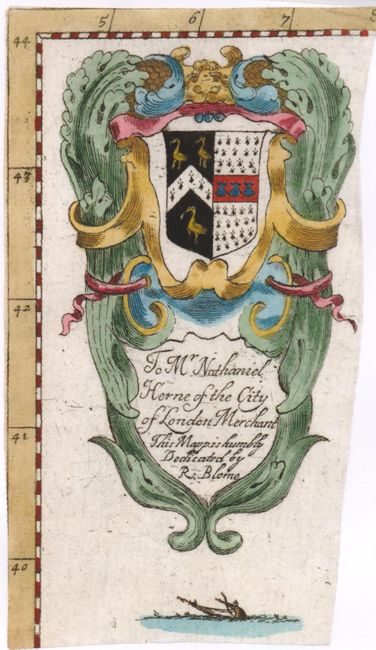 5 6 7 8
44
43
42
41
40
To Mr Nathaniel
Herne of the City
of London Merchant
This Mapp is humbly
Dedicated by
R: Blome